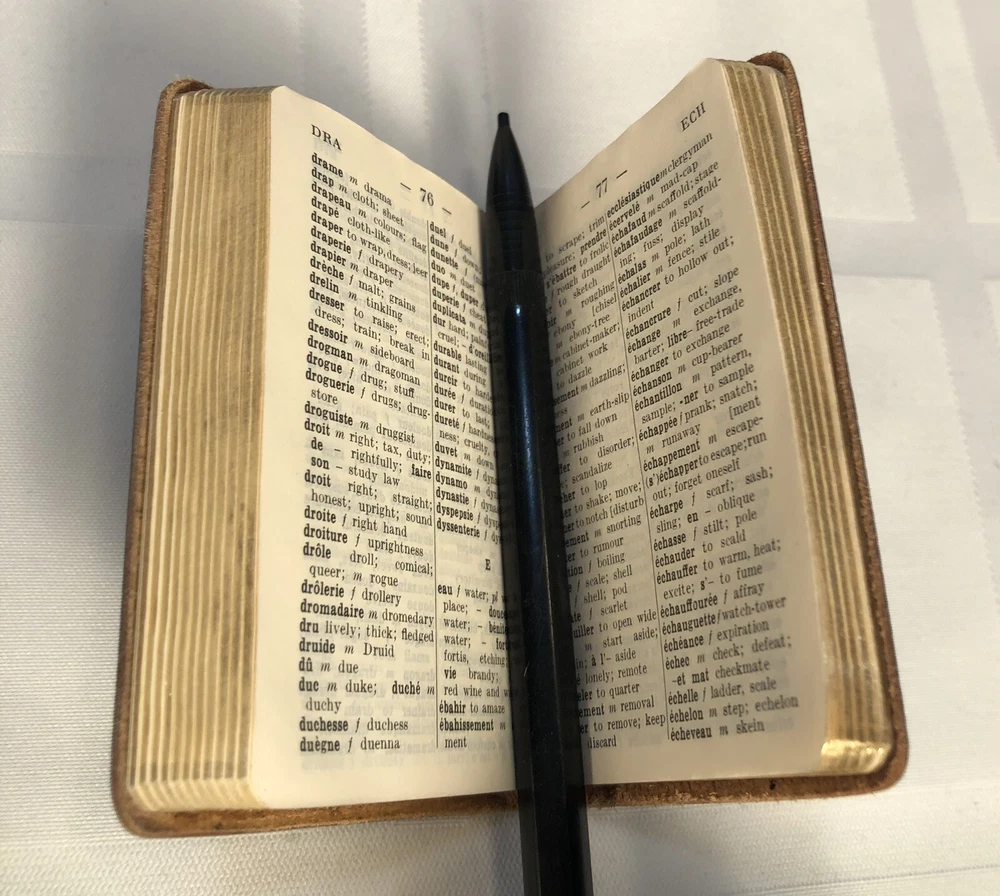 DRA
— 76 —
drame m drama
drap m cloth; sheet
drapeau m colours; flag
drapé cloth-like
draper to wrap, dress; jeer
draperie f drapery
drapier m draper
drèche f malt; grains
drelin m tinkling
dresser to raise; erect;
dress; train; break in
dressoir m sideboard
drogman m dragoman
drogue f drug; stuff
droguerie f drugs; drug-
store
droguiste m druggist
droit m right; tax, duty;
de – rightfully; faire
son – study law
droit right; straight;
honest; upright; sound
droite f right hand
droiture f uprightness
drôle droll; comical;
queer; m rogue
drôlerie f drollery
dromadaire m dromedary
dru lively; thick; fledged
druide m Druid
dû m due
duc m duke; duché m
duchy
duchesse f duchess
duègne f duenna
duel f
dune f
dunette f
duo m
dupe f
duperie f
duplicata m
dur hard;
cruel;
durable lasting
durant during
durcir to
durée f
durer to last;
dureté f
ness; cruelty,
duvet m down
dynamite f
dynamo m
dynastie f
dyspepsie f
dyssenterie f
E
eau f water; pl
place; –
water; –
water; –
fortis, etching;
vie brandy;
red wine and
ébahir to amaze
ébahissement m
ment
ECH
— 77 —
to scrape; trim
prendre
to frolic
rough draught
to sketch
m roughing
ebony [chisel
m ebony-tree
m cabinet-maker;
cabinet work
to dazzle
m dazzling;
m earth-slip
to fall down
m rubbish
to disorder;
scandalize
to lop
to shake; move;
to notch [disturb
m snorting
to rumour
f boiling
f scale; shell
f shell; pod
f scarlet
to open wide
m start aside;
à l'– aside
lonely; remote
to quarter
m removal
to remove; keep
discard
ecclésiastique m clergyman
écervelé m mad-cap
échafaud m scaffold; stage
échafaudage m scaffold-
ing; fuss; display
échalas m pole; lath
échalier m fence; stile
échancrer to hollow out;
indent
échancrure f cut; slope
échange m exchange,
barter; libre– free-trade
échanger to exchange
échanson m cup-bearer
échantillon m pattern,
sample; -ner to sample
échappée f prank; snatch;
m runaway [ment
échappement m escape-
(s')échapper to escape; run
out; forget oneself
écharpe f scarf; sash,
sling; en – oblique
échasse f stilt; pole
échauder to scald
échauffer to warm, heat;
excite; s'– to fume
échauffourée f affray
échauguette f watch-tower
échéance f expiration
échec m check; defeat;
–et mat checkmate
échelle f ladder, scale
échelon m step; echelon
écheveau m skein